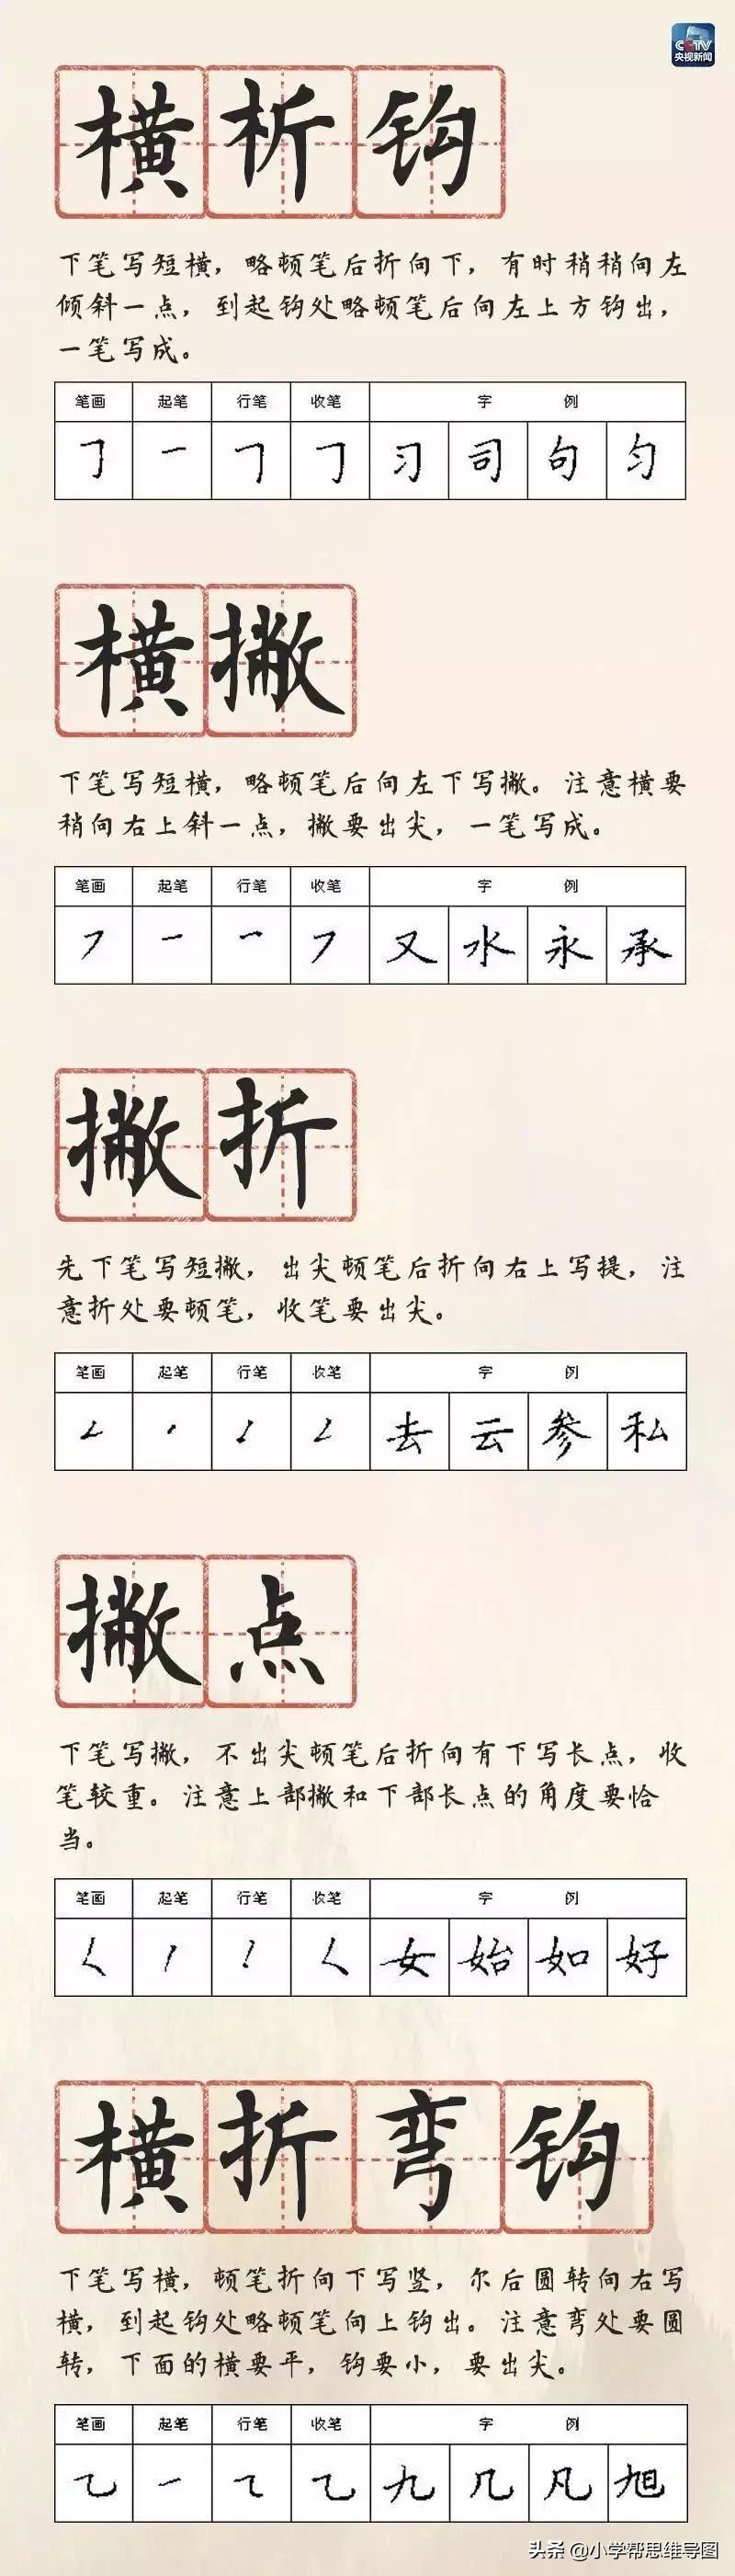 CCTV
央视新闻
横析钩
下笔写短横，略顿笔后折向下，有时稍稍向左
倾斜一点，到起钩处略顿笔后向左上方钩出，
一笔写成。
笔画 起笔 行笔 收笔 字例
习 司 句 匀
横撇
下笔写短横，略顿笔后向左下写撇。注意横要
稍向右上斜一点，撇要出尖，一笔写成。
笔画 起笔 行笔 收笔 字例
又 水 永 承
撇折
先下笔写短撇，出尖顿笔后折向右上写提，注
意折处要顿笔，收笔要出尖。
笔画 起笔 行笔 收笔 字例
去 云 参 私
撇点
下笔写撇，不出尖顿笔后折向有下写长点，收
笔较重。注意上部撇和下部长点的角度要恰
当。
笔画 起笔 行笔 收笔 字例
女 始 如 好
横折弯钩
下笔写横，顿笔折向下写竖，尔后圆转向右写
横，到起钩处略顿笔向上钩出。注意弯处要圆
转，下面的横要平，钩要小，要出尖。
笔画 起笔 行笔 收笔 字例
九 几 凡 旭
头条 @小学帮思维导图